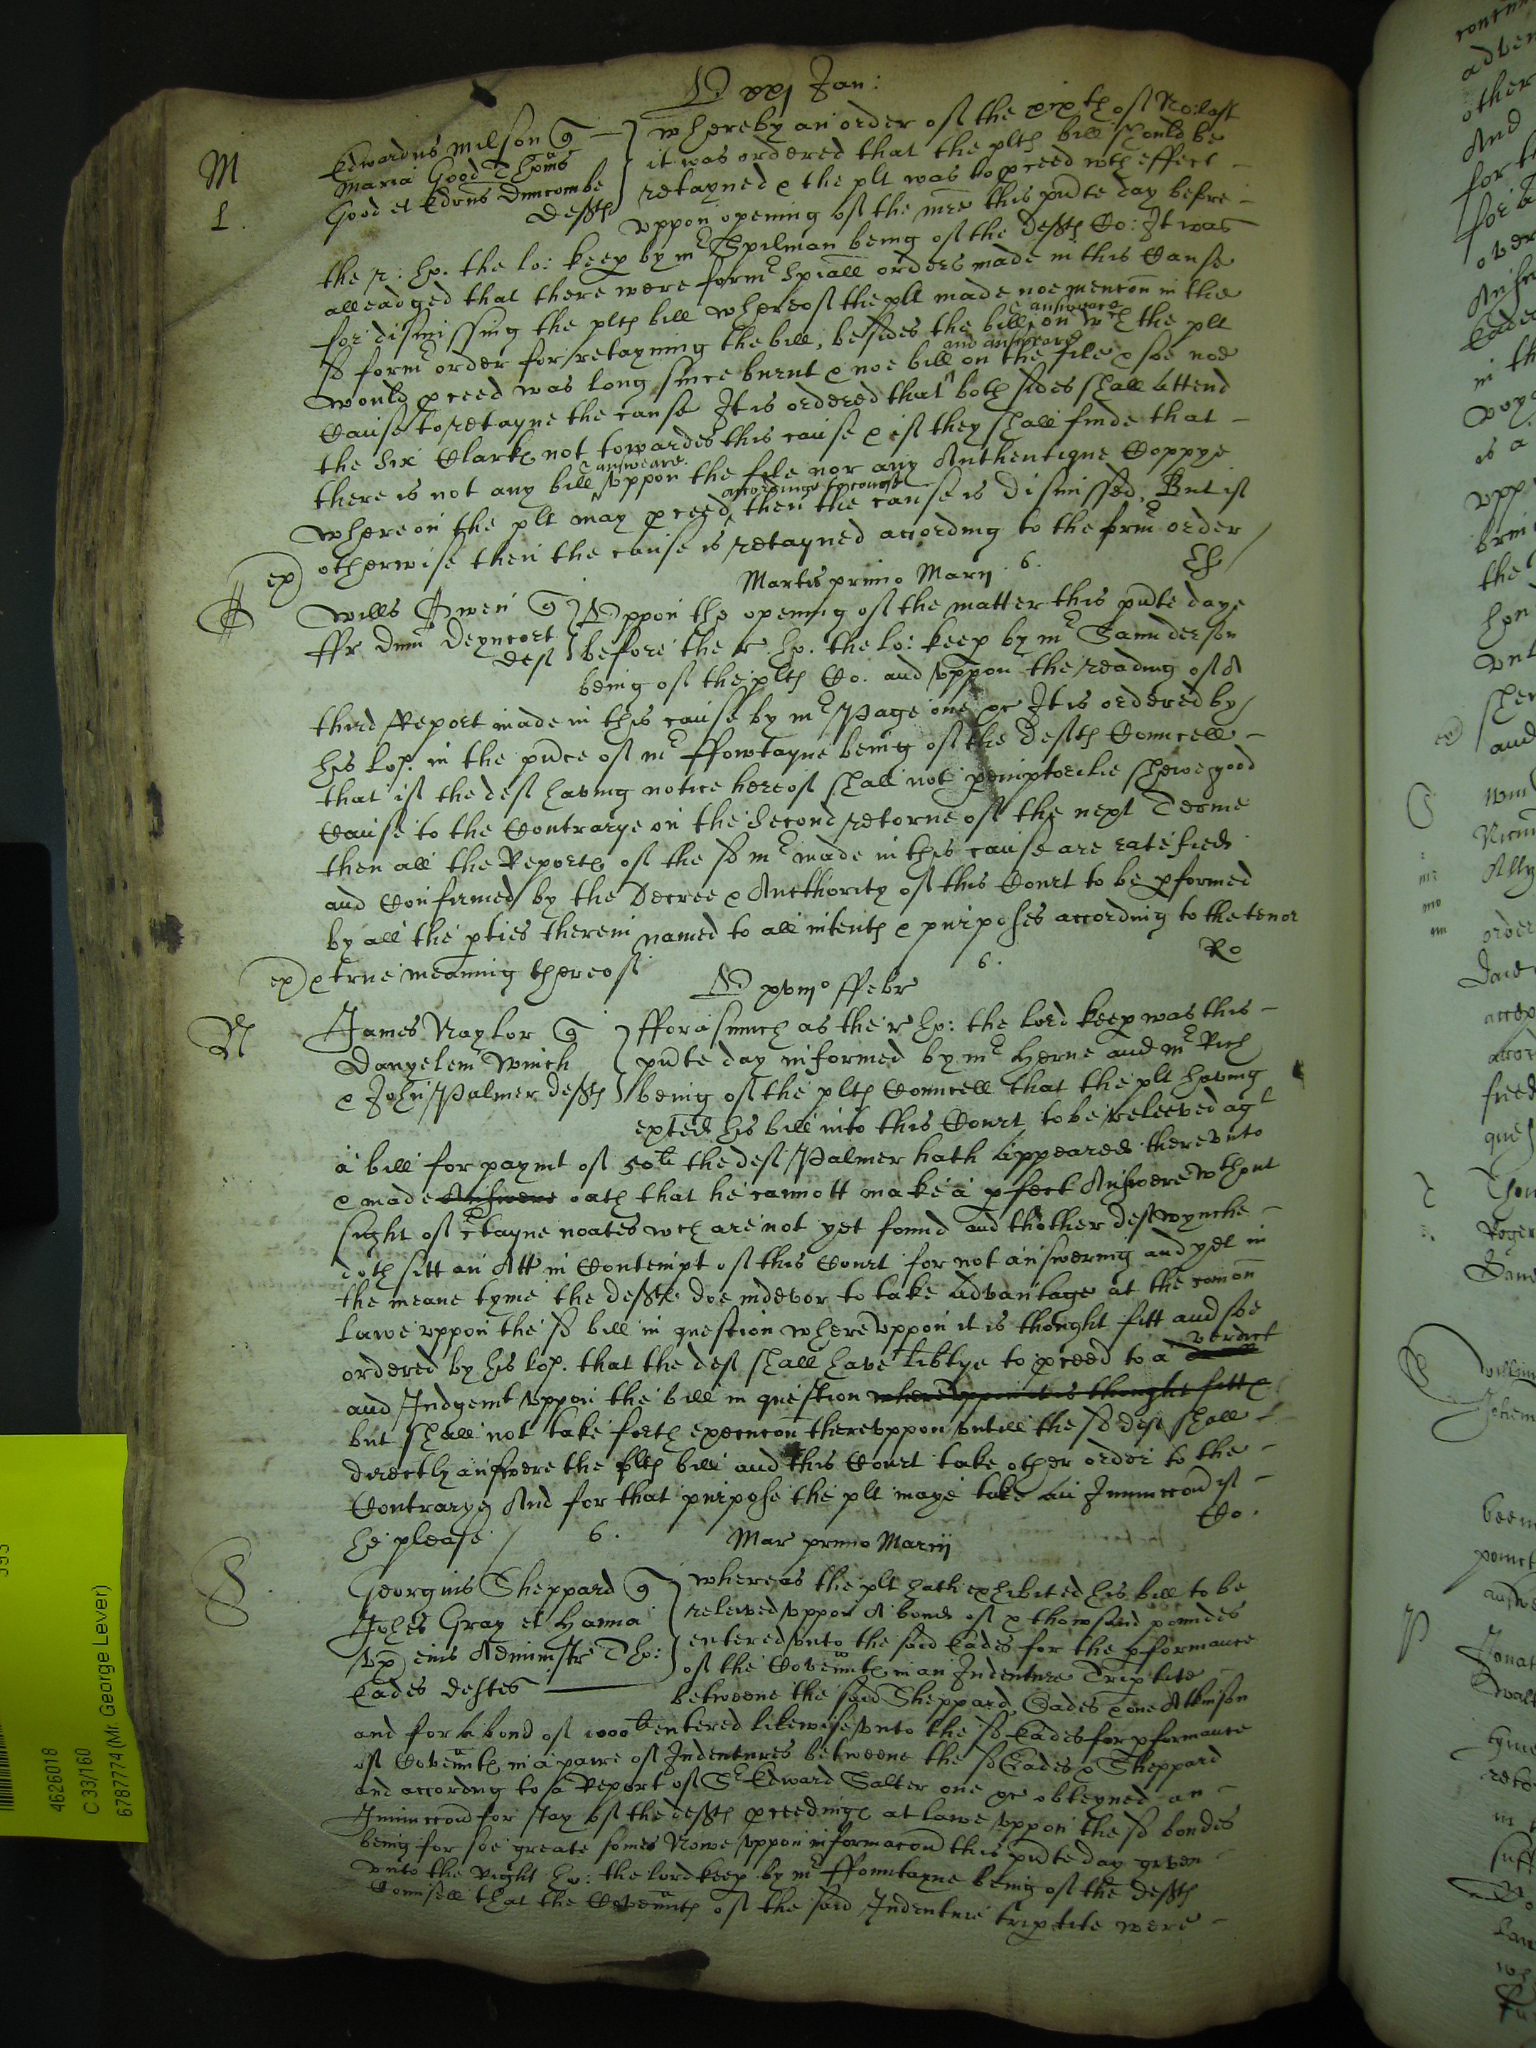 D xxj Jan:
M
L.
Edwardus Milson q
Maria Good Thoms
Good et Edrus Duncombe
Deftes
whereby an order of the xixth of No: last
it was ordered that the pltes bill should be
retayned & the plt was to pceed wth effect
uppon opening of the mre this pnte day before
the r: ho. the lo: keep by mr Spilman being of the Deftes Co: It was
alleadged that there were formr spiall orders made in this Cause
for dismissing the pltes bill whereof the plt made noe mencon in the
sd formr order for retayning the bill, besides the bill & answeare on wch the plt
would pceed was long since burnt & noe bill and answeare on the file & soe noe
Cause to retayne the cause It is ordered that both sides shall Attend
the Six Clarkes not towardes this cause & if they shall finde that
there is not any bill & answeare uppon the file nor any Authentique Coppye
whereon the plt may pceed accordinge to course then the cause is dismissed, But if
otherwise then the cause is retayned according to the formr order
ex
Martis primo Marij 6.
Wills Owen q
ffr Dnm Deyncort
Def
Uppon the opening of the matter this pnte daye
before the r ho. the lo: keep by mr Saunderson
being of the pltes Co. and uppon the reading of A
third Report made in this cause by mr Page one &c It is ordered by
his lop. in the pnce of mr ffowtayne being of the Deftes Councell
that if the def having notice hereof shall not pemptorilie shewe good
Cause to the Contrarye on the Second retorne of the next Terme
then all the Reportes of the sd mr made in this cause are ratefied
and Confirmed by the Decree & Aucthority of this Court to be pformed
by all the pties therein named to all intentes & purposes according to the tenor
ex & true meaning thereof
6.
Ro
D xviijo ffebr
N
James Naylor q
Danyelem Winch
& John Palmer Deftes
fforasmuch as the r ho: the lord keep was this
pnte day informed by mr Herne and mr Rich
being of the pltes Councell that the plt having
exted his bill into this Court to be releeved agt
a bill for paymt of 50li the def Palmer hath Appeared thereunto
& made Answere oath that he cannott make a pfect Answere wthout
sight of ctayne noates wch are not yet found and thother def Wynche
doth sitt an Att in Contempt of this Court for not answering and yet in
the meane tyme the deftes doe indevor to take Advantage at the comon
Lawe uppon the sd bill in question whereuppon it is thought fitt and soe
ordered by his lop. that the def shall have libtye to pceed to a verdict
and Judgemt uppon the bill in question whereuppon it is thought fitt &
but shall not take forth execucon thereuppon untill the sd def shall
directly answere the pltes bill and this Court take other order to the
Contrarye And for that purpose the plt maye take an Iniunccon if
he please 6.
Co.
Mar primo Marij
S
Georgius Sheppard q
Johes Gray et Hanna
Ux eius Administr Tho:
Eades deftes
whereas the plt hath exhibited his bill to be
releived uppon A bond of x thowsand poundes
entered unto the said Eades for the pformance
of the Covenntes in an Indenture Triptite
betweene the said Sheppard, Eades & one Atkinson
and for A bond of 1000li entered likewise unto the sd Eades for pformance
of Covenntes in a paire of Indentures betweene the sd Eades & Sheppard
and according to a Report of Sr Edward Salter one &c obteyned an
Iniunccon for stay of the deftes pceedinges at lawe uppon the sd bondes
being for soe greate somes Nowe uppon informacon this pnte day given
unto the right ho: the lord keep by mr ffountayne being of the deftes
Councell that the Covenntes of the said Indenture triptite were
4626018
C 33/160
6787774 (Mr. George Lever)